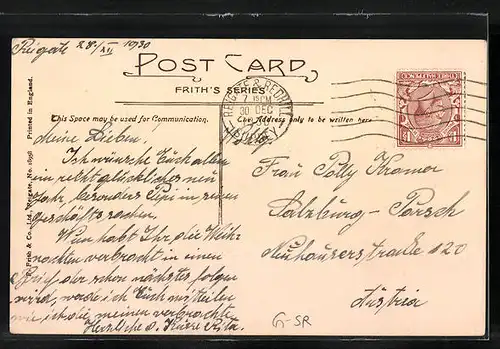 Reigate 28/XII 1930
POST CARD
FRITH'S SERIES
This Space may be used for Communication.
The Address only to be written here
F. Frith & Co., Ltd., Reigate, No. Printed in England.
REIGATE & REDHILL
30 DEC
1930
SURREY
Meine Lieben!
Ich wünsche Euch allen
ein recht glückliches neues
Jahr, besonders Pipi in
Geschäftssachen.
Wie habt Ihr die Weih-
nachten verbracht in einem
Brief der schon nächstes folgen
wird, werde ich Euch mitteilen
wie ich die meinen verbrachte.
Herzliche Küsse Rita.
Frau Polly Kramer
Salzburg - Parsch
Neuhauserstraße 120
Austria
G-SR